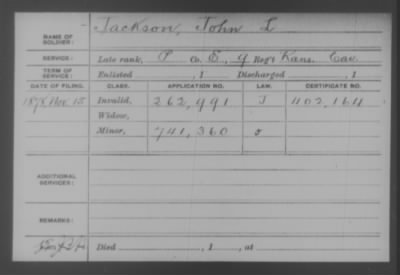 Jackson, John L
NAME OF SOLDIER:
SERVICE: Late rank, P Co. E, 9 Reg't Kans. Cav
TERM OF SERVICE: Enlisted , 1 Discharged , 1
DATE OF FILING. CLASS. APPLICATION NO. LAW. CERTIFICATE NO.
1878 Nov. 15 Invalid, 262,991 J 402,164
Widow,
Minor, 741,360
ADDITIONAL SERVICES:
REMARKS:
Died , 1 , at